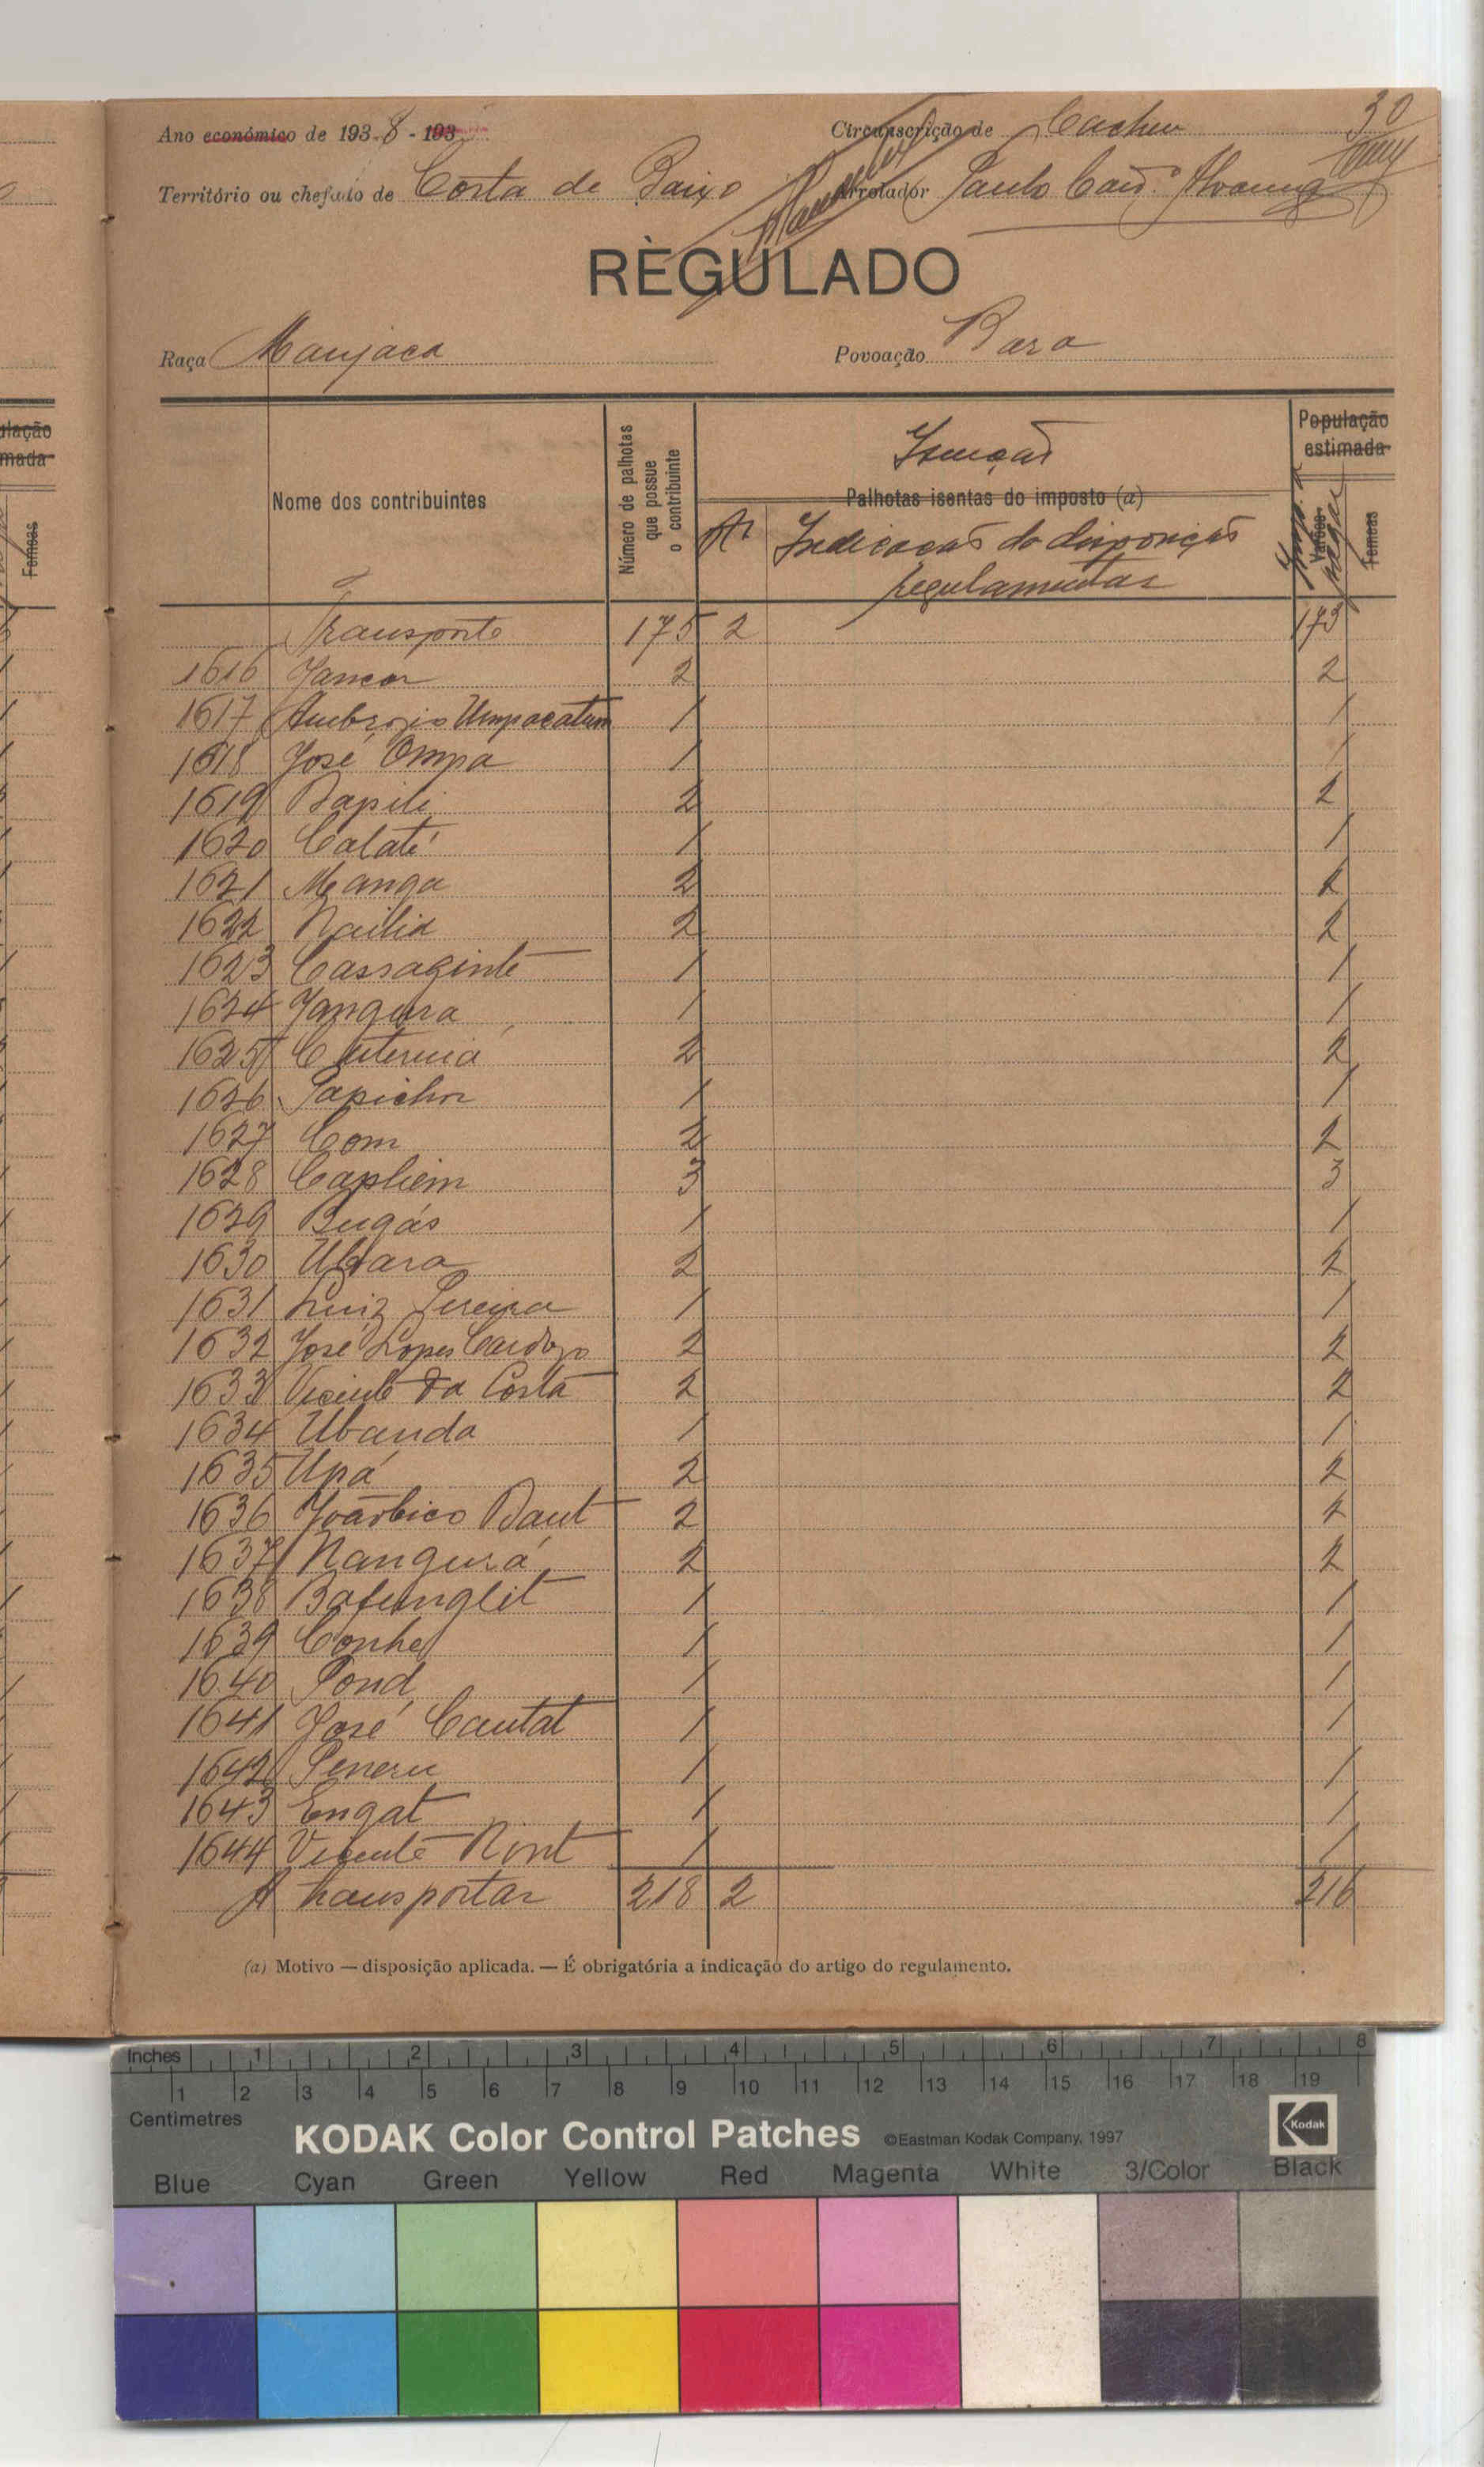 Ano económico de 1938-193
Circunscrição de Cacheu
30
Território ou chefado de Costa de Baixo
Arrolador Paulo
RÈGULADO
Raça Manjaca
Povoação Bara
Nome dos contribuintes
Número de palhotas que possue o contribuinte
Isenção
Palhotas isentas do imposto (a)
Indicação da disposição
regulamentar
População
estimada
Varões
Femeas
Transporte 175 2 173
1616 Jancor 2 2
1617 Ambrozio Umpacatum 1 1
1618 José Ompa 1 1
1619 Bapili 2 2
1620 Calaté 1 1
1621 Manga 2 2
1622 Nailia 2 2
1623 Cassaginte 1 1
1624 Jangura 1 1
1625 2 2
1626 Papichor 1 1
1627 Com 2 2
1628 Capliem 3 3
1629 Bugás 1 1
1630 Ubara 2 2
1631 Luiz Pereira 1 1
1632 José Lopes Cardozo 2 2
1633 Vicente da Costa 2 2
1634 Ubanda 1 1
1635 Upá 2 2
1636 2 2
1637 Nangurá 2 2
1638 Bafunglit 1 1
1639 Conhe 1 1
1640 Pond 1 1
1641 José Cantat 1 1
1642 Peneru 1 1
1643 Engat 1 1
1644 Vicente Nint 1 1
A transportar 218 2 216
(a) Motivo — disposição aplicada. — É obrigatória a indicação do artigo do regulamento.
ulação
mada
Femeas
Inches 1 2 3 4 5 6 7 8
1 2 3 4 5 6 7 8 9 10 11 12 13 14 15 16 17 18 19
Centimetres
KODAK Color Control Patches ©Eastman Kodak Company, 1997 Kodak
Blue Cyan Green Yellow Red Magenta White 3/Color Black